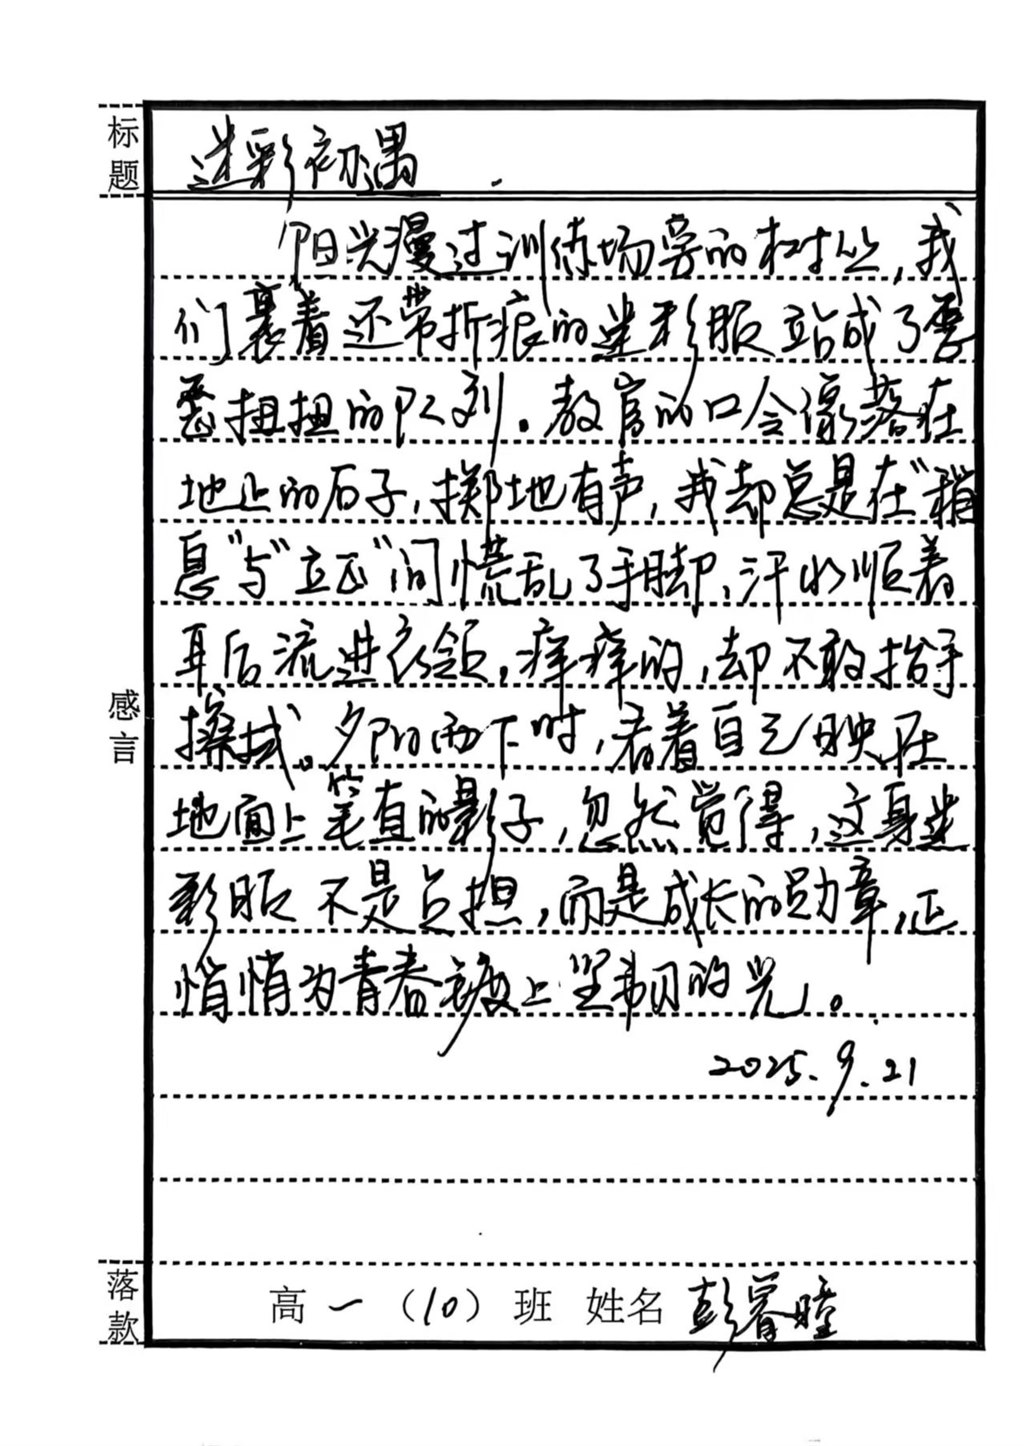 标题
迷彩初遇
阳光漫过训练场旁的树丛,我
们裹着还带折痕的迷彩服站成了歪
歪扭扭的队列。教官的口令像落在
地上的石子,掷地有声,我却总是在“稍
息”与“立正”间慌乱了手脚,汗水顺着
耳后流进衣领,痒痒的,却不敢抬手
擦拭。夕阳西下时,看着自己映在
地面上笔直的影子,忽然觉得,这身迷
彩服不是负担,而是成长的勋章,正
悄悄为青春镀上坚韧的光。
2025.9.21
感言
落款
高一(10)班 姓名 彭